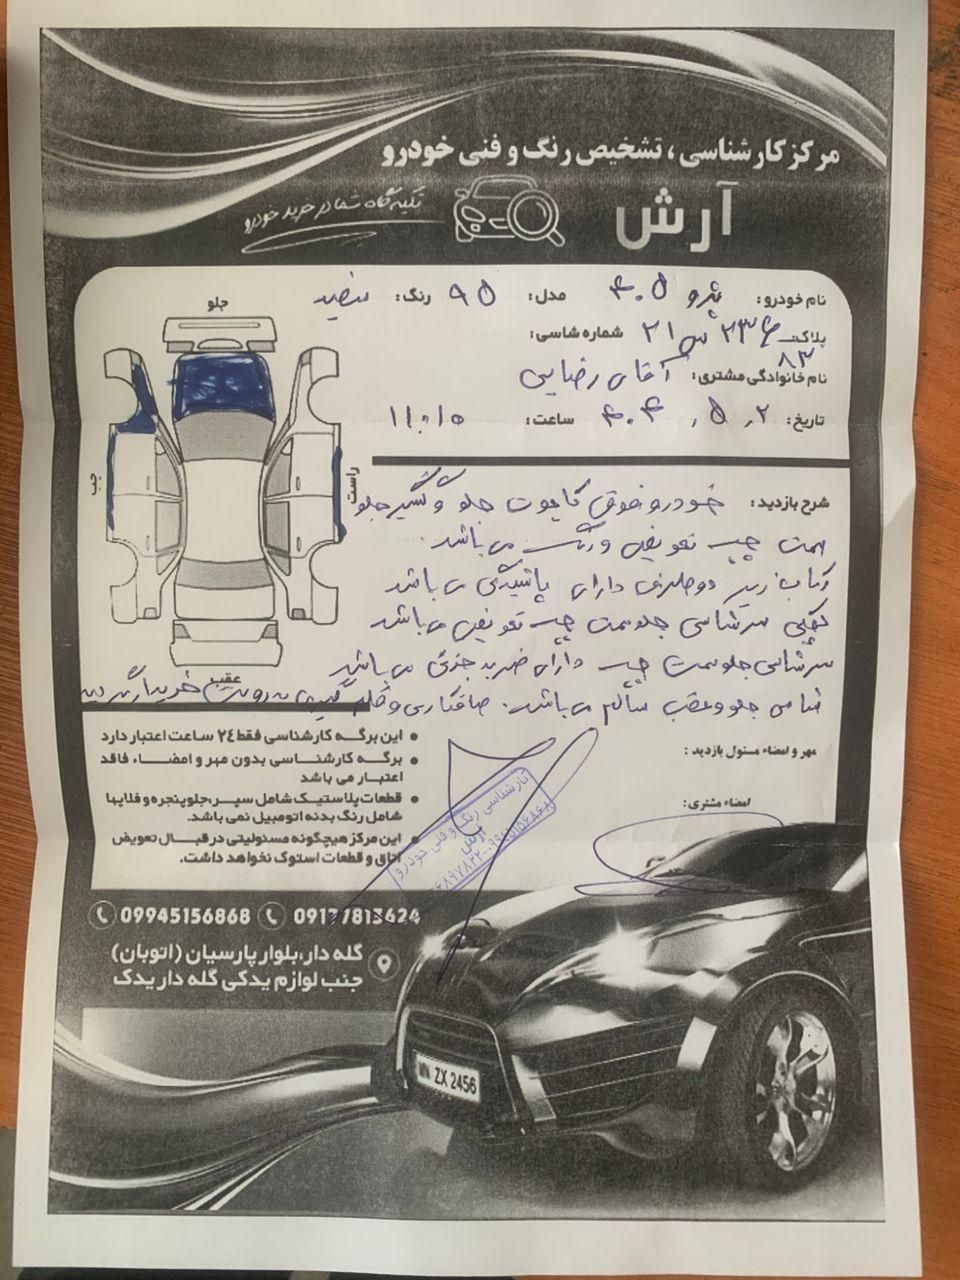 مرکز کارشناسی، تشخیص رنگ و فنی خودرو
آرش
تکیه گاه شما در خرید خودرو
نام خودرو: پژو ۴۰۵ مدل: ۹۵ رنگ: سفید
پلاک: ۲۳۶ س ۲۱ شماره شاسی:
۸۳
نام خانوادگی مشتری: آقای رضایی
تاریخ: ۴۰۴٫۵٫۲ ساعت: ۱۱:۰۱۵
جلو
چپ
راست
عقب
شرح بازدید: خودرو فوق کاپوت جلو و گلگیر جلو
سمت چپ تعویض و رنگ می باشد.
رکاب زیر دو طرف دارای پاشیدگی می باشد
کپی سرشاسی جلو سمت چپ تعویض می باشد
سرشاسی جلو سمت چپ دارای ضربه جزئی می باشد
شاسی جلو و عقب سالم می باشد. صافکاری و خریدار
این برگه کارشناسی فقط ۲۴ ساعت اعتبار دارد
برگه کارشناسی بدون مهر و امضاء فاقد
اعتبار می باشد
قطعات پلاستیک شامل سپر، جلوپنجره و فلاپها
شامل رنگ بدنه اتومبیل نمی باشد.
این مرکز هیچگونه مسئولیتی در قبال تعویض
اتاق و قطعات استوک نخواهد داشت.
مهر و امضاء مسئول بازدید:
امضاء مشتری:
کارشناسی رنگ و فنی خودرو
آرش
09945156868
گله دار، بلوار پارسیان (اتوبان)
جنب لوازم یدکی گله دار یدک
ZX 2456